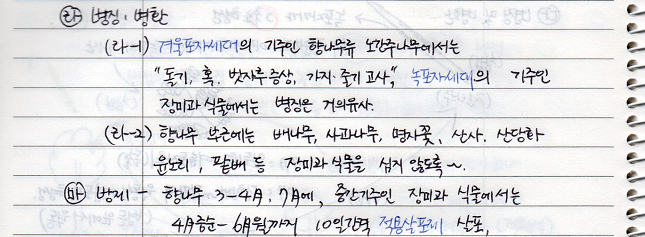 ㉱ 병징·병환
(라-1) 겨울포자세대의 기주인 향나무류 노간주나무에서는
"돌기, 혹, 빗자루증상, 가지·줄기 고사", 녹포자세대의 기주인
장미과 식물에서는 병징은 거의유사.
(라-2) 향나무 부근에는 배나무, 사과나무, 명자꽃, 산사, 산당화
윤노리, 팥배 등 장미과식물을 심지 않도록~.
㉲ 방제 - 향나무 3-4月, 7月에, 중간기주인 장미과 식물에서는
4月중순- 6月까지 10일간격 적용살포제 살포,